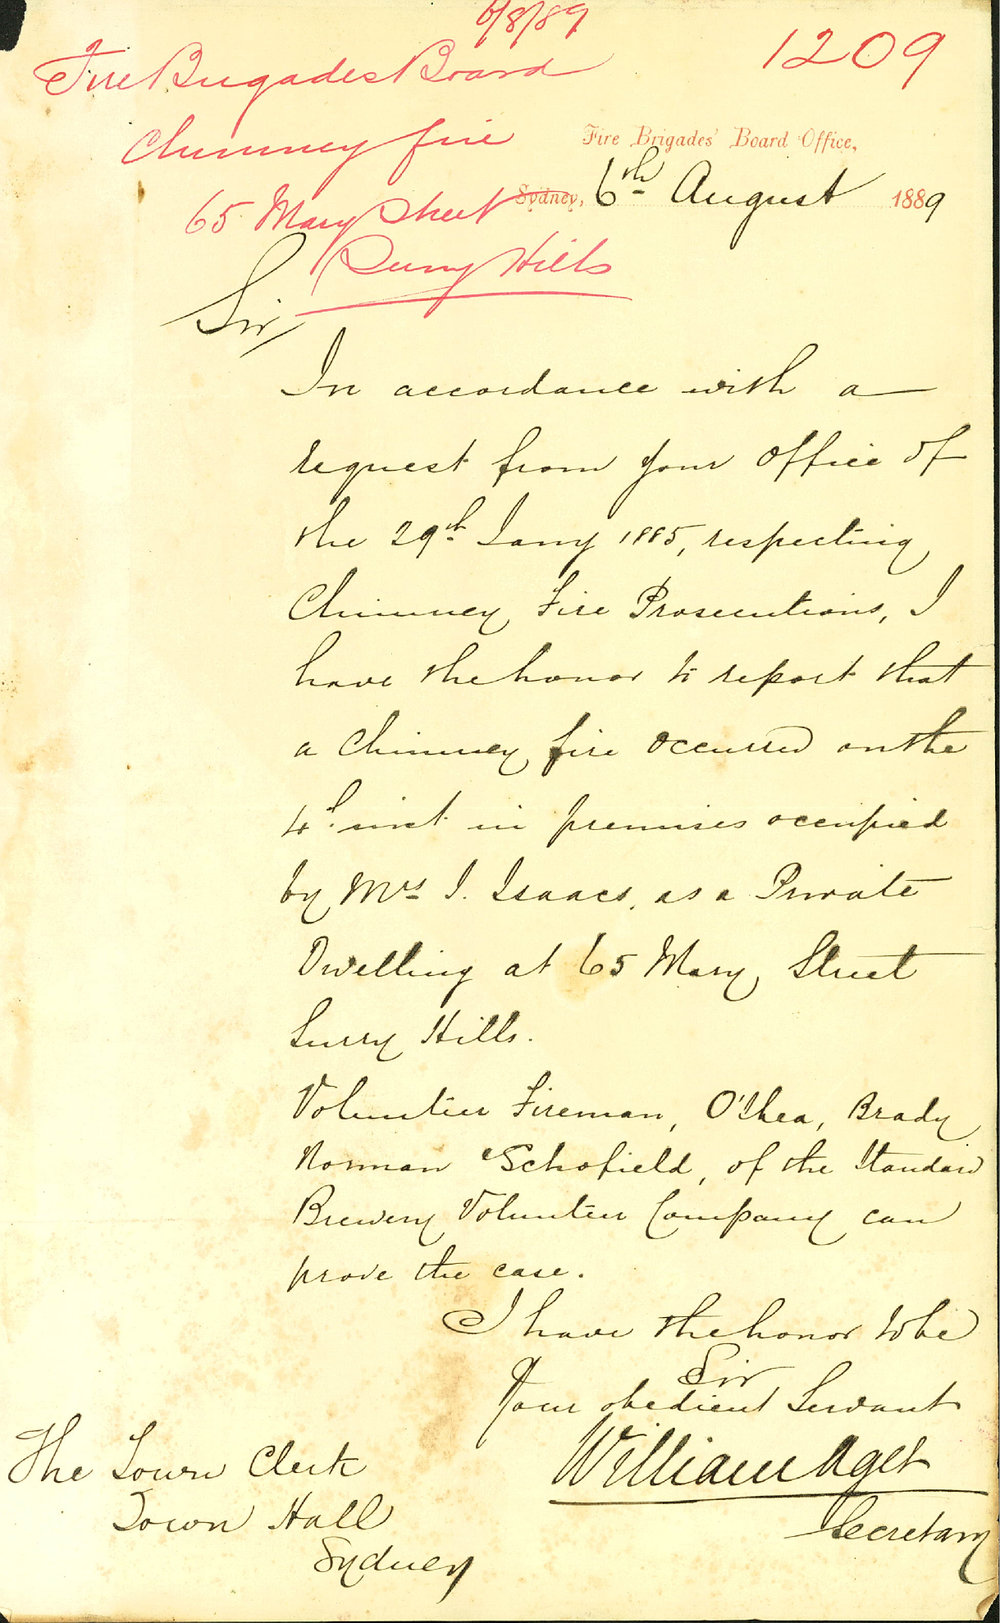 6/8/89
1209
Fire Brigades Board
Chimney fire
65 Mary Street
Surry Hills
Fire Brigades' Board Office,
Sydney, 6th August 1889
Sir,
In accordance with a
request from your office of
the 29th Jany 1885, respecting
Chimney Fire Prosecutions, I
have the honor to report that
a Chimney fire occurred on the
4th inst in premises occupied
by Mrs I. Isaacs, as a Private
Dwelling at 65 Mary Street
Surry Hills.
Volunteer Fireman, O'Shea, Brady
Norman & Schofield, of the Standard
Brewery Volunteer Company can
prove the case.
I have the honor to be
Sir
Your obedient Servant
William Aget
Secretary
The Town Clerk
Town Hall
Sydney